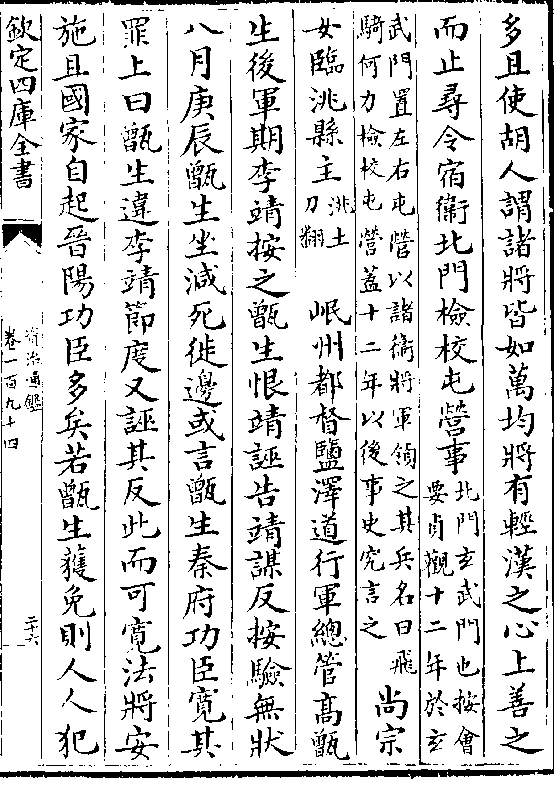 多且使胡人謂諸將皆如萬均將有輕漢之心上善之
而止尋令宿衛北門檢校屯營事北門玄武門也按會
要貞觀十二年於玄
武門置左右屯營以諸衛將軍領之其兵名曰飛
騎何力檢校屯營蓋十二年以後事史究言之
尚宗
女臨洮縣主洮土
刀翻
岷州都督鹽澤道行軍總管高甑
生後軍期李靖按之甑生恨靖誣告靖謀反按驗無狀
八月庚辰甑生坐減死徙邊或言甑生秦府功臣寛其
罪上曰甑生違李靖節度又誣其反此而可寛法將安
施且國家自起晉陽功臣多矣若甑生獲免則人人犯
欽定四庫全書
資治通鑑
卷一百九十四
二十六